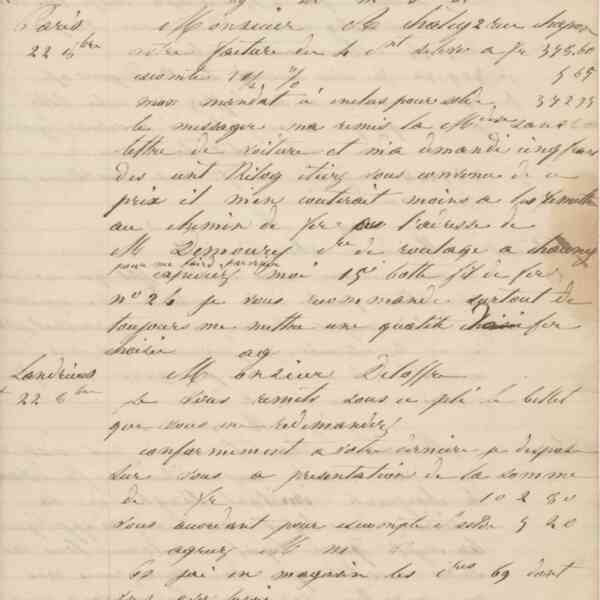 Paris Monsieur A chatiez rue chapon
22 8bre votre facture du 4 c.nt s'élève a fr 378.60
escompte 1 1/2 % 5 65
mon mandat ci inclus pour solde. 372 75
le messager ma remis la M.dise sans
lettre de voiture et m'a demandé cinq francs
des cent Kilog etiez vous convenu de ce
prix il m'en couterait moins a les remettre
au chemin de fer a l'adresse de
M Demoury de roulage a chauny
pour me faire parvenir
expediez moi 15 botte fil de fer
n° 26 je vous recommande surtout de
toujours me mettre une qualité fer
choisie ag
Landrecies Monsieur Deloffre
22 8bre Je vous remets sous ce pli le billet
que vous me redemandez
conformement a votre dernière je dispose
sur vous a presentation de la somme
de fr 102 80
vous accordant pour escompte et solde 5 20
agreez M m
Jai en magasin les 69 dont